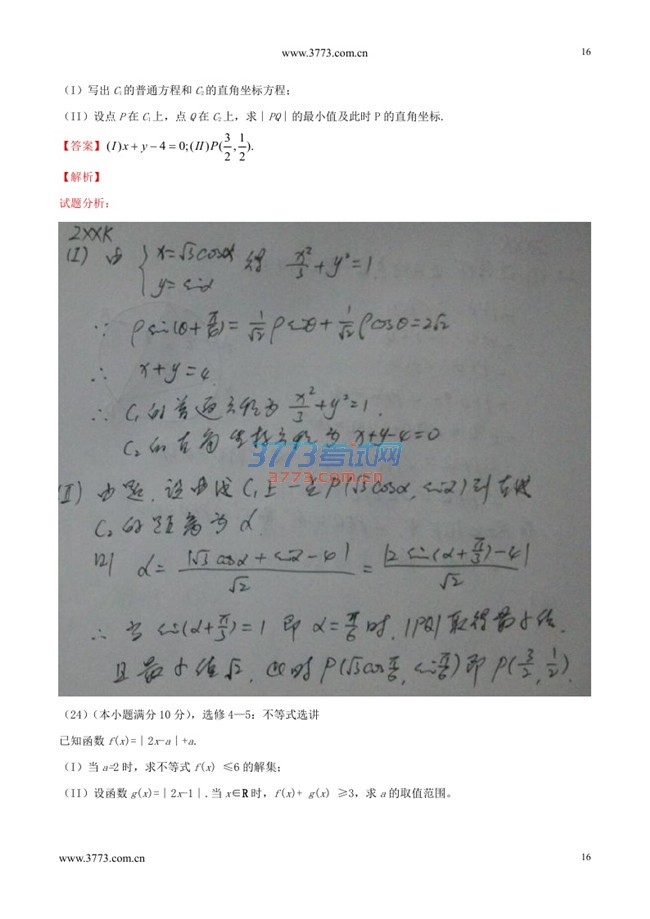 www.3773.com.cn 16
(I)写出 C₁的普通方程和 C₂的直角坐标方程;
(II)设点 P 在 C₁上,点 Q 在 C₂上,求∣PQ∣的最小值及此时 P 的直角坐标.
【答案】(I)x+y−4=0;(II)P(3/2,1/2).
【解析】
试题分析:
ZXXK
(I) 由 { x=√3cosα y=sinα 得 x²/3+y²=1
∵ ρsin(θ+π/6)=1/√2 ρsinθ+1/√2 ρcosθ=2√2
∴ x+y=4
∴ C₁的普通方程为 x²/3+y²=1.
C₂的直角坐标方程为 x+y-4=0
3773考试网
www.3773.com.cn
(II) 由题,设曲线C₁上一点P(√3cosα, sinα)到直线
C₂的距离为d.
则 d=|√3cosα+sinα-4|/√2=|2sin(α+π/3)-4|/√2
∴ 当 sin(α+π/3)=1 即 α=π/6 时,|PQ|取得最小值.
且最小值√2,此时P(√3cosπ/6, sinπ/6)即P(3/2,1/2).
(24)(本小题满分 10 分),选修 4—5:不等式选讲
已知函数 f(x)=∣2x-a∣+a.
(I)当 a=2 时,求不等式 f(x) ≤6 的解集;
(II)设函数 g(x)=∣2x-1∣.当 x∈R 时,f(x)+ g(x) ≥3,求 a 的取值范围。
www.3773.com.cn 16